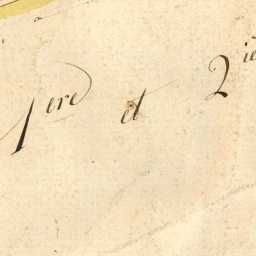 1ere et 2ie